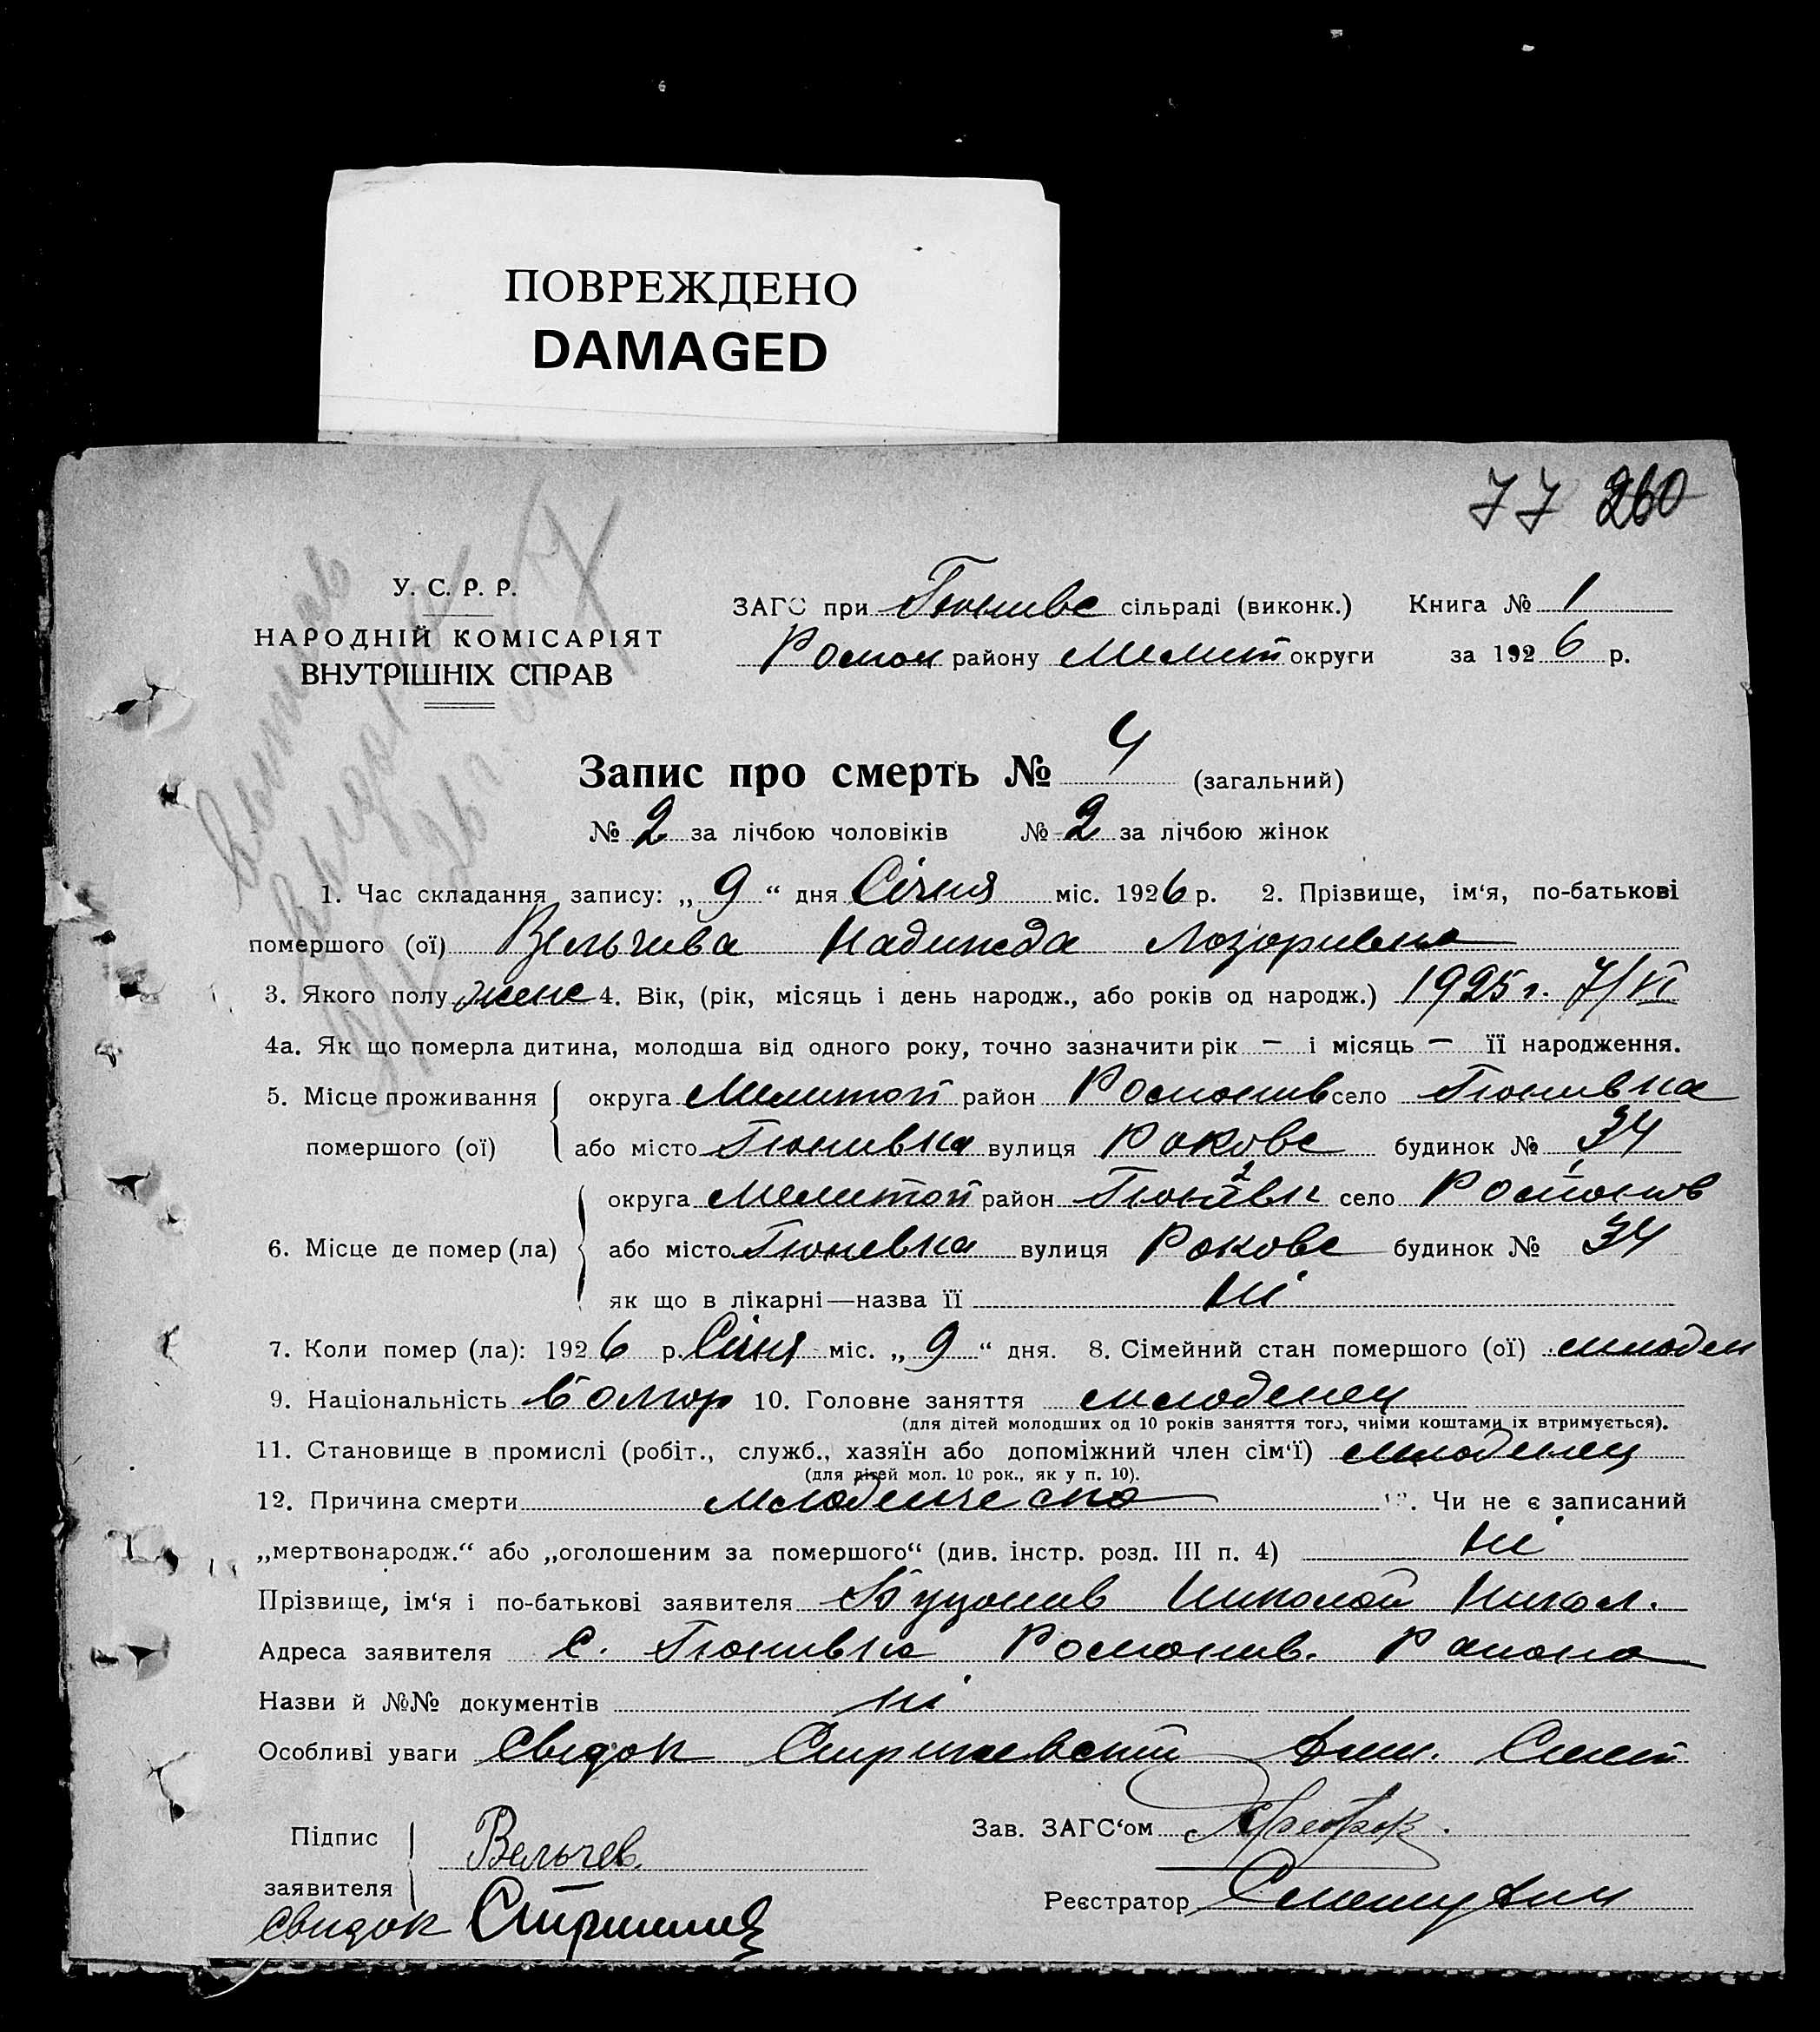 ПОВРЕЖДЕНО
DAMAGED
77 260
У. С. Р. Р.
НАРОДНІЙ КОМІСАРІЯТ
ВНУТРІШНІХ СПРАВ
ЗАГС при Гюнивс сільраді (виконк.) Книга № 1
району Мелит округи за 1926 р.
Запис про смерть № 4 (загальний)
№ 2 за лічбою чоловіків № 2 за лічбою жінок
1. Час складання запису: „ 9 “ дня Січня міс. 1926 р. 2. Прізвище, ім‘я, по-батькові
помершого (ої) Вельчева Надижда Лозоривна
3. Якого полу женс 4. Вік, (рік, місяць і день народж., або років од народж.) 1925 г. 7/VI
4а. Як що померла дитина, молодша від одного року, точно зазначити рік — і місяць — її народження.
5. Місце проживання округа Мелитоп район Росионив село Гюнивка
помершого (ої) або місто Гюнивка вулиця Рокове будинок № 34
округа Мелитоп район село
6. Місце де помер (ла) або місто Гюневка вулиця Рокове будинок № 34
як що в лікарні—назва її Ні
7. Коли помер (ла): 1926 р. Січня міс. „ 9 “ дня. 8. Сімейний стан помершого (ої) младен
9. Національність болгор 10. Головне заняття младенец
(для дітей молодших од 10 років заняття того, чиїми коштами їх втримується).
11. Становище в промислі (робіт., служб., хазяїн або допоміжний член сім‘ї) младенец
(для дітей мол. 10 рок., як у п. 10).
12. Причина смерти младенческо . Чи не є записаний
„мертвонародж.“ або „оголошеним за помершого“ (див. інстр. розд. III п. 4) Ні
Прізвище, ім‘я і по-батькові заявителя Николай Никол.
Адреса заявителя с. Гюнивка Росионив. Раиона
Назви й №№ документів Ні
Особливі уваги Свидок
Підпис Вельчев. Зав. ЗАГС‘ом
заявителя Реєстратор
Свидок